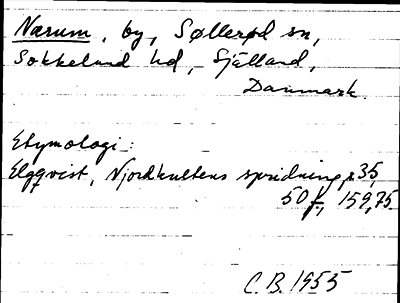 Nærum, by, Søllerød sn,
Sokkelund hd, Själland,
Danmark.
Etymologi:
Elgqvist, Njordkultens spridning, s 35,
50 f., 159, 75
C. B. 1955